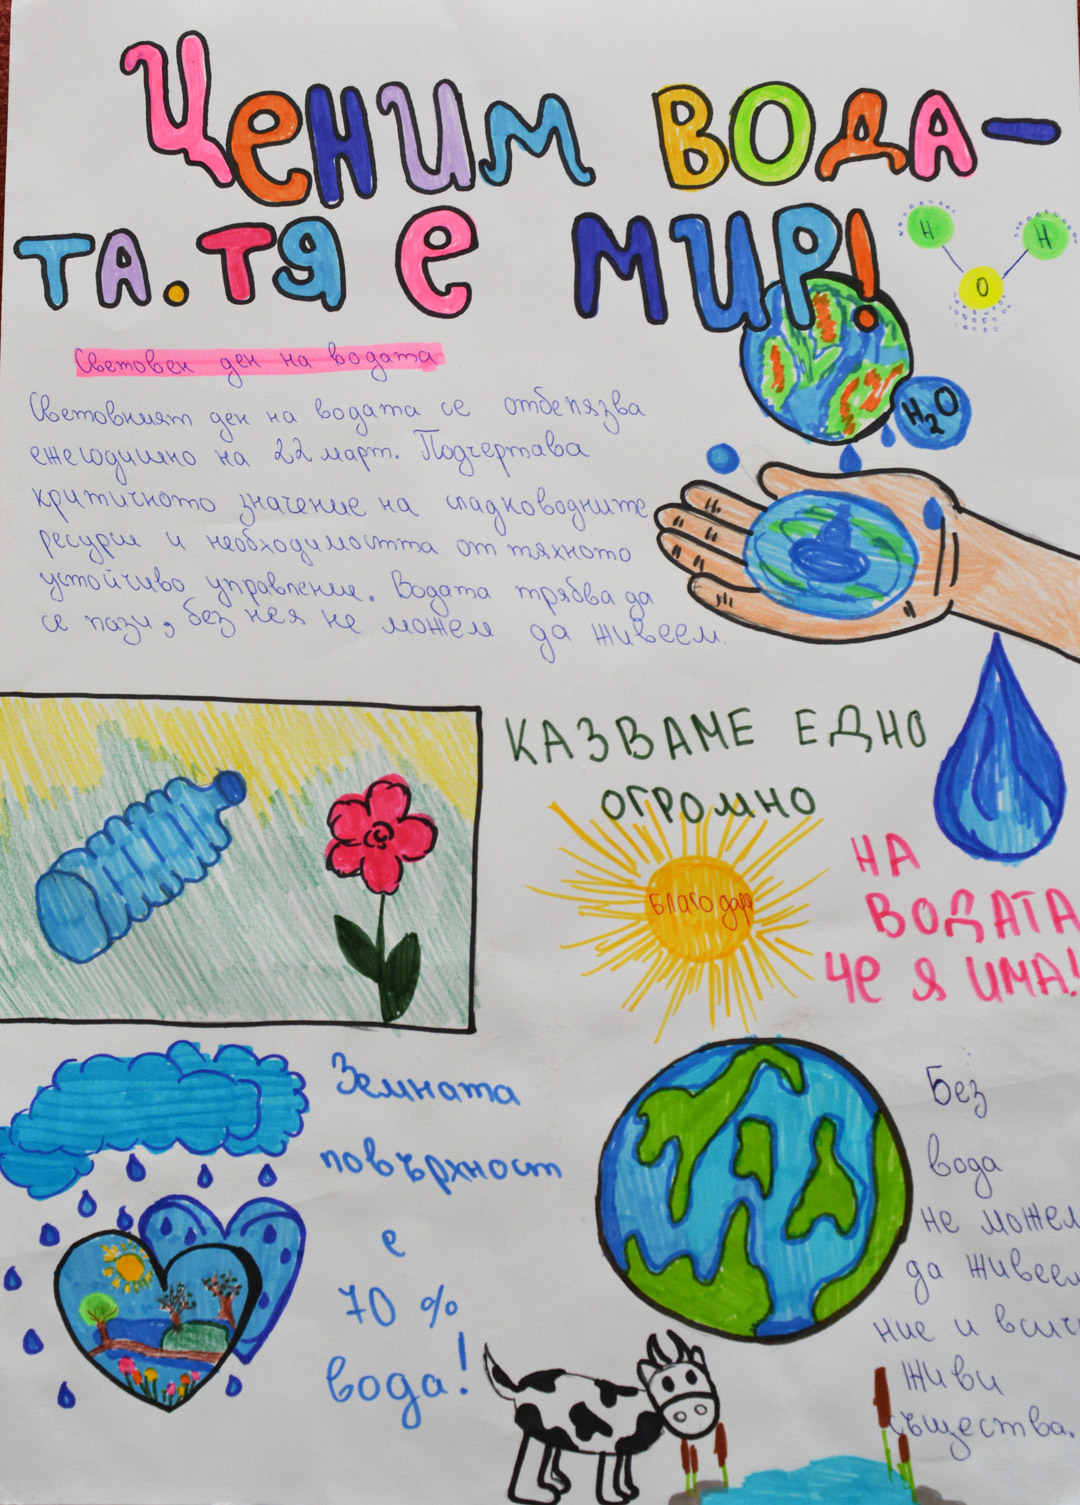 Ценим вода-
та. Тя е мир!
H
H
O
Световен ден на водата
H₂O
Световният ден на водата се отбелязва
ежегодишно на 22 март. Подчертава
критичното значение на сладководните
ресурси и необходимостта от тяхното
устойчиво управление. Водата трябва да
се пази, без нея не можем да живеем.
КАЗВАМЕ ЕДНО
ОГРОМНО
Благодаря
НА
ВОДАТА,
ЧЕ Я ИМА!
Земната
повърхност
е
70 %
вода!
Без
вода
не можем
да живеем
ние и
живи
същества.